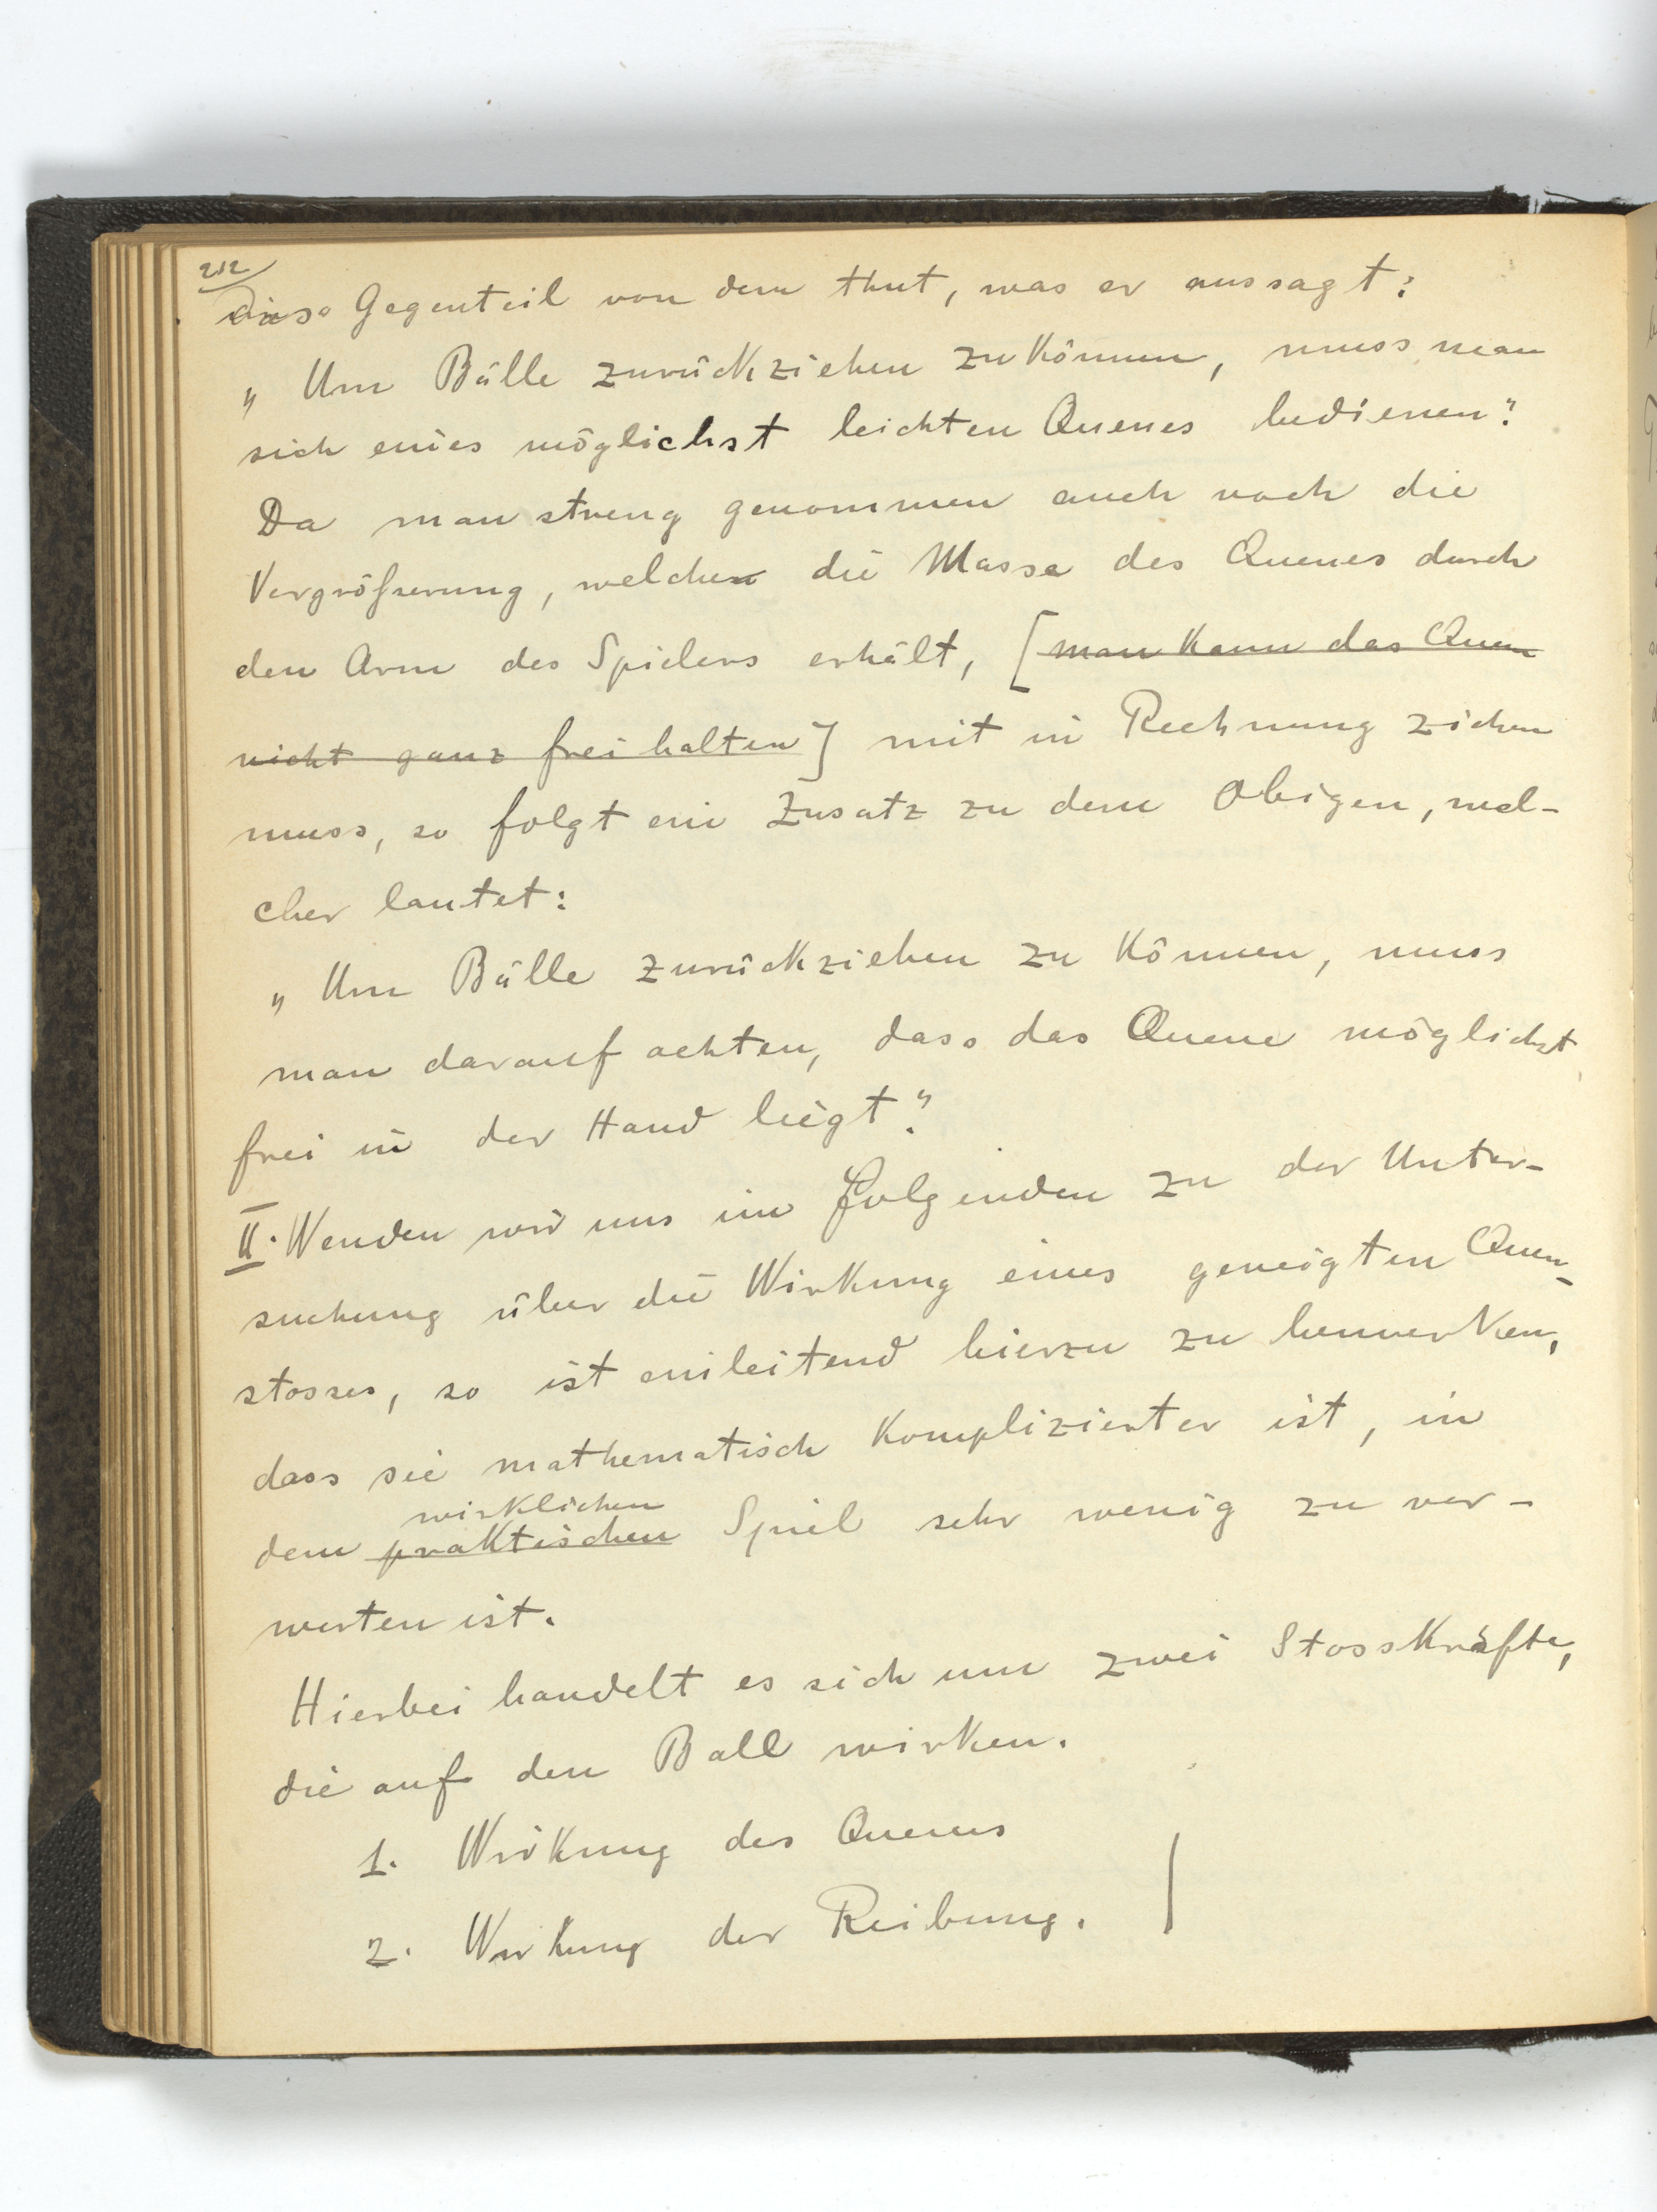 212
diese Gegenteil von dem thut, was er aussagt:
„Um Bälle zurückziehen zu können, muss man
sich eines möglichst leichten Queues bedienen."
Da man streng genommen auch noch die
Vergrößerung, welchen die Masse des Queues durch
den Arm des Spielers erhält, [man kann das Queue
nicht ganz frei halten] mit in Rechnung ziehen
muss, so folgt ein Zusatz zu dem Obigen, wel-
cher lautet:
„Um Bälle zurückziehen zu können, muss
man darauf achten, dass das Queue möglichst
frei in der Hand liegt."
II. Wenden wir uns im folgenden zu der Unter-
suchung über die Wirkung eines geneigten Queu-
stosses, so ist einleitend hierzu zu bemerken,
dass sie mathematisch komplizierter ist, in
wirklichen
dem praktischen Spiel sehr wenig zu ver-
werten ist.
Hierbei handelt es sich um zwei Stosskräfte,
die auf den Ball wirken.
1. Wirkung des Queues
2. Wirkung der Reibung.